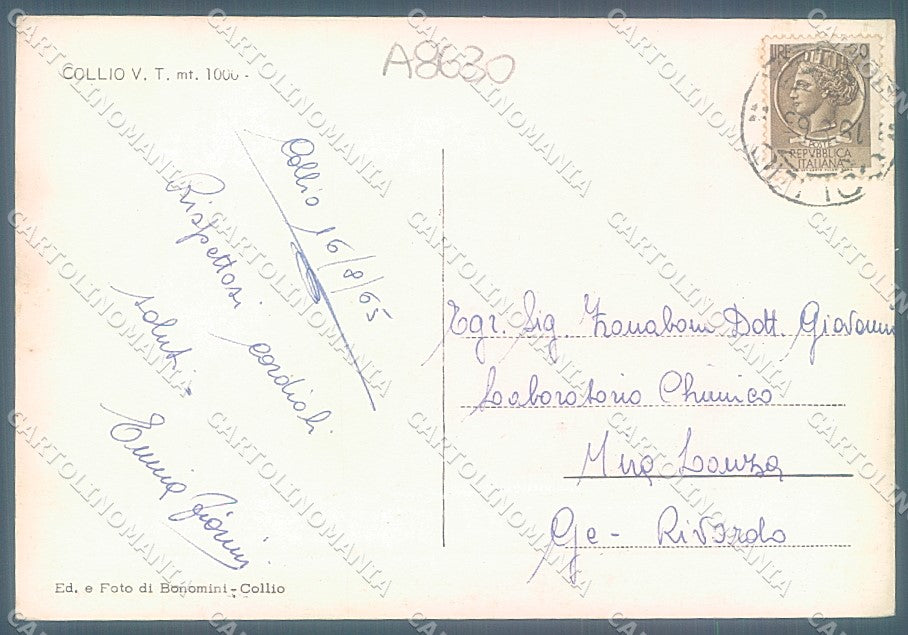 COLLIO V. T. mt. 1000 -
A8630
LIRE 30
POSTE
REPVBBLICA
ITALIANA
Collio 16/8/65
Rispettosi cordiali
saluti =
Emma
Egr. Sig. Zanaboni Dott. Giovanni
Laboratorio Chimico
Mira Lanza
Ge - Rivarolo
Ed. e Foto di Bonomini - Collio
CARTOLINOMANIA